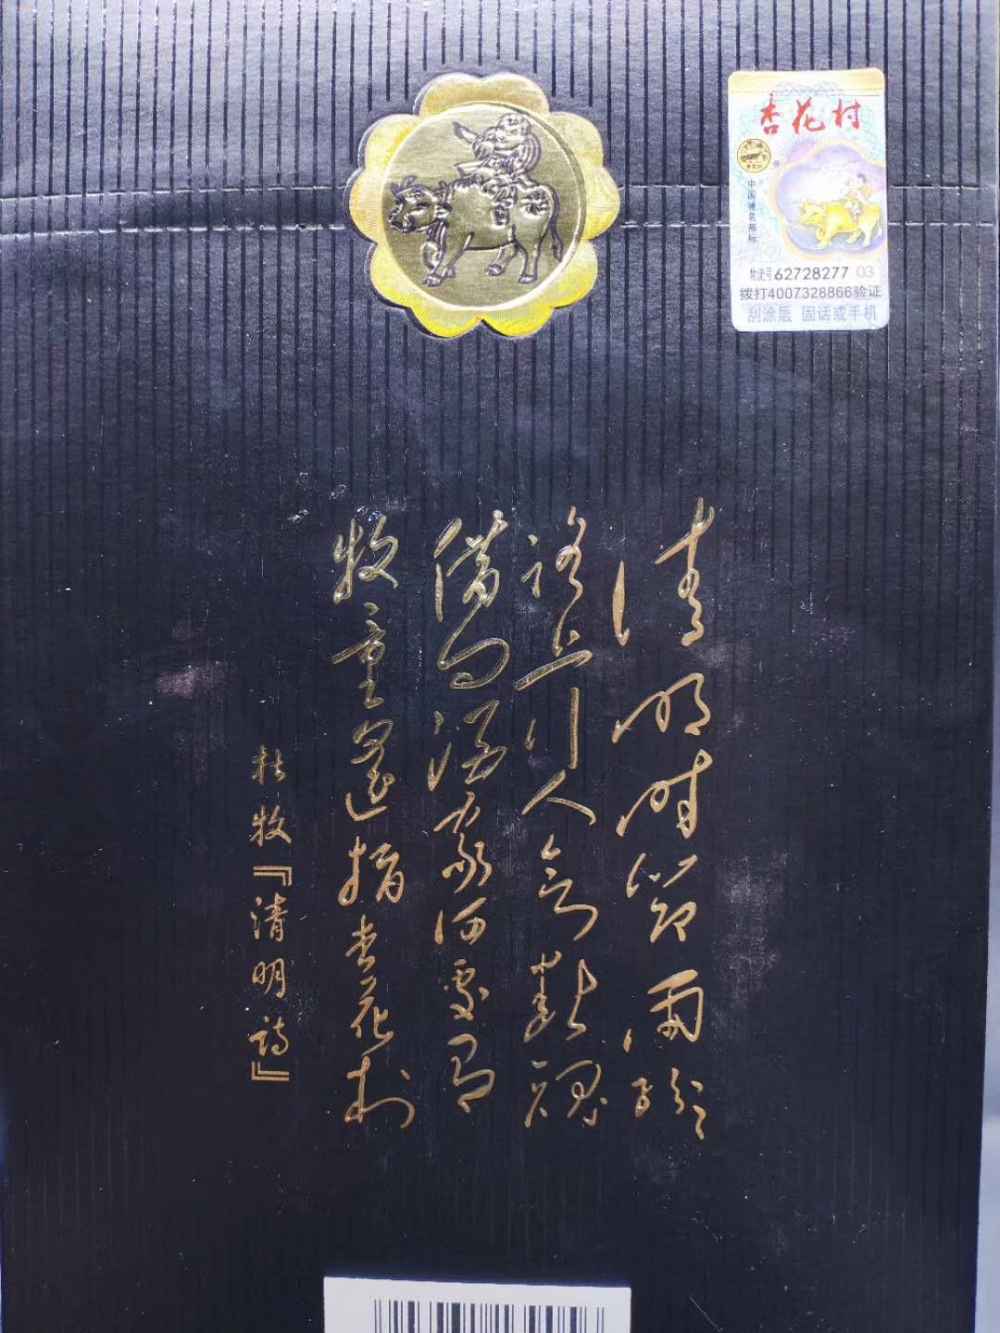 杏花村
中国驰名商标
62728277 03
拨打4007328866验证
刮涂层 固话或手机
清明时节雨纷纷
路上行人欲断魂
借问酒家何处有
牧童遥指杏花村
杜牧『清明诗』